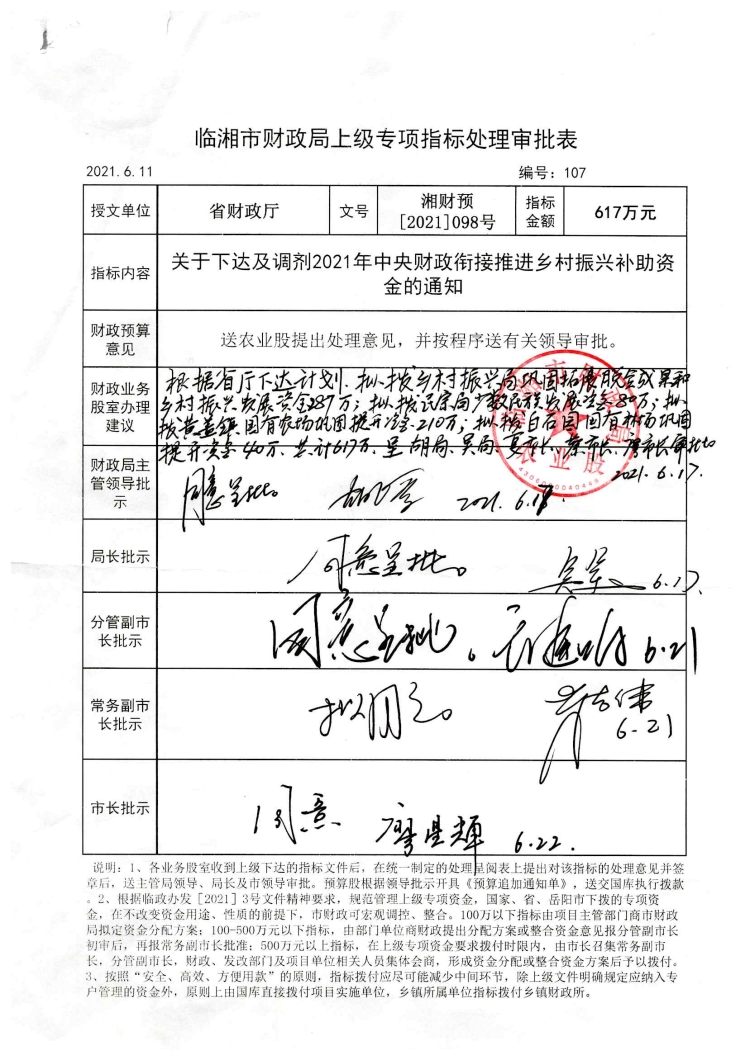 临湘市财政局上级专项指标处理审批表
2021.6.11 编号：107
授文单位 省财政厅 文号 湘财预[2021]098号 指标金额 617万元
指标内容 关于下达及调剂2021年中央财政衔接推进乡村振兴补助资金的通知
财政预算意见 送农业股提出处理意见，并按程序送有关领导审批。
财政业务股室办理建议
根据省厅下达计划，拟拨乡村振兴局巩固拓展脱贫成果和
乡村振兴发展资金287万；拟拨民宗局少数民族发展资金80万；拟
拨黄盖镇国有农场巩固提升资金210万；拟拨白石园国有林场巩固
提升资金40万，共计617万，呈胡局、吴局、
2021.6.17.
农业股
财政局主管领导批示 同意呈批。 2021.6.17.
局长批示 同意呈批。 6.17.
分管副市长批示 同意呈批。 6.21
常务副市长批示 拟同意。 6-21
市长批示 同意 廖星辉 6.22.
说明：1、各业务股室收到上级下达的指标文件后，在统一制定的处理呈阅表上提出对该指标的处理意见并签
章后，送主管局领导、局长及市领导审批。预算股根据领导批示开具《预算追加通知单》，送交国库执行拨款
。2、根据临政办发［2021］3号文件精神要求，规范管理上级专项资金，国家、省、岳阳市下拨的专项资
金，在不改变资金用途、性质的前提下，市财政可宏观调控、整合。100万以下指标由项目主管部门商市财政
局拟定资金分配方案；100-500万元以下指标，由部门单位商财政提出分配方案或整合资金意见报分管副市长
初审后，再报常务副市长批准；500万元以上指标，在上级专项资金要求拨付时限内，由市长召集常务副市
长，分管副市长，财政、发改部门及项目单位相关人员集体会商，形成资金分配或整合资金方案后予以拨付。
3、按照“安全、高效、方便用款”的原则，指标拨付应尽可能减少中间环节，除上级文件明确规定应纳入专
户管理的资金外，原则上由国库直接拨付项目实施单位，乡镇所属单位指标拨付乡镇财政所。